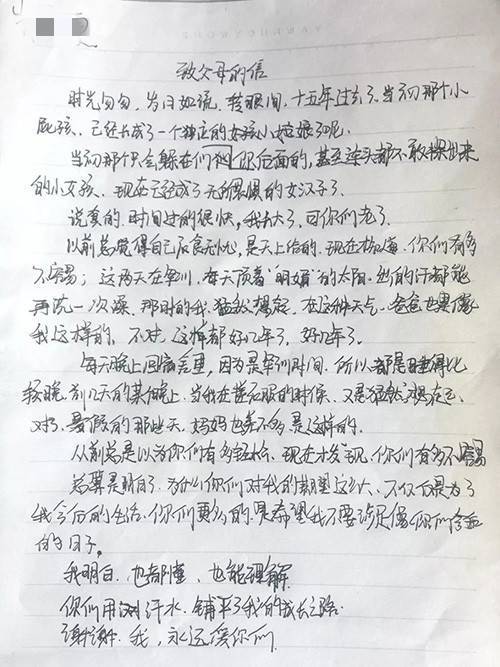 致父母的信
时光匆匆，岁月如流，转眼间，十五年过去了，当初那个小
屁孩，已经长成了一个独立的女孩小姑娘了呢。
当初那个只会躲在你们后面的，甚至连头都不敢探出来
的小女孩，现在已经成了无所畏惧的女汉子了。
说真的，时间过的很快，我长大了，可你们老了。
以前总觉得自己衣食无忧，是天上给的，现在才懂，你们有多
不容易；这两天在军训，每天顶着"明媚"的太阳，出的汗都能
再洗一次澡，那时的我，猛然想起，在这种天气，爸爸也是像
我这样的，不对，这样都好几年了，好几年了。
每天晚上回宿舍里，因为是军训时间，所以，都是睡得比
较晚，前几天的某晚上，当我在洗衣服的时候，又是猛然想起，
对了，暑假的那些天，妈妈也差不多是这样的。
从前总是以为你们有多轻松，现在才发现，你们有多不容易
总算是明白了，为什么你们对我的期望这么大，不仅仅是为了
我今后的生活，你们更多的是希望我不要涉足像你们一样
的日子。
我明白，也都懂，也能理解
你们用汗水，铺平了我的成长之路
谢谢，我，永远爱你们